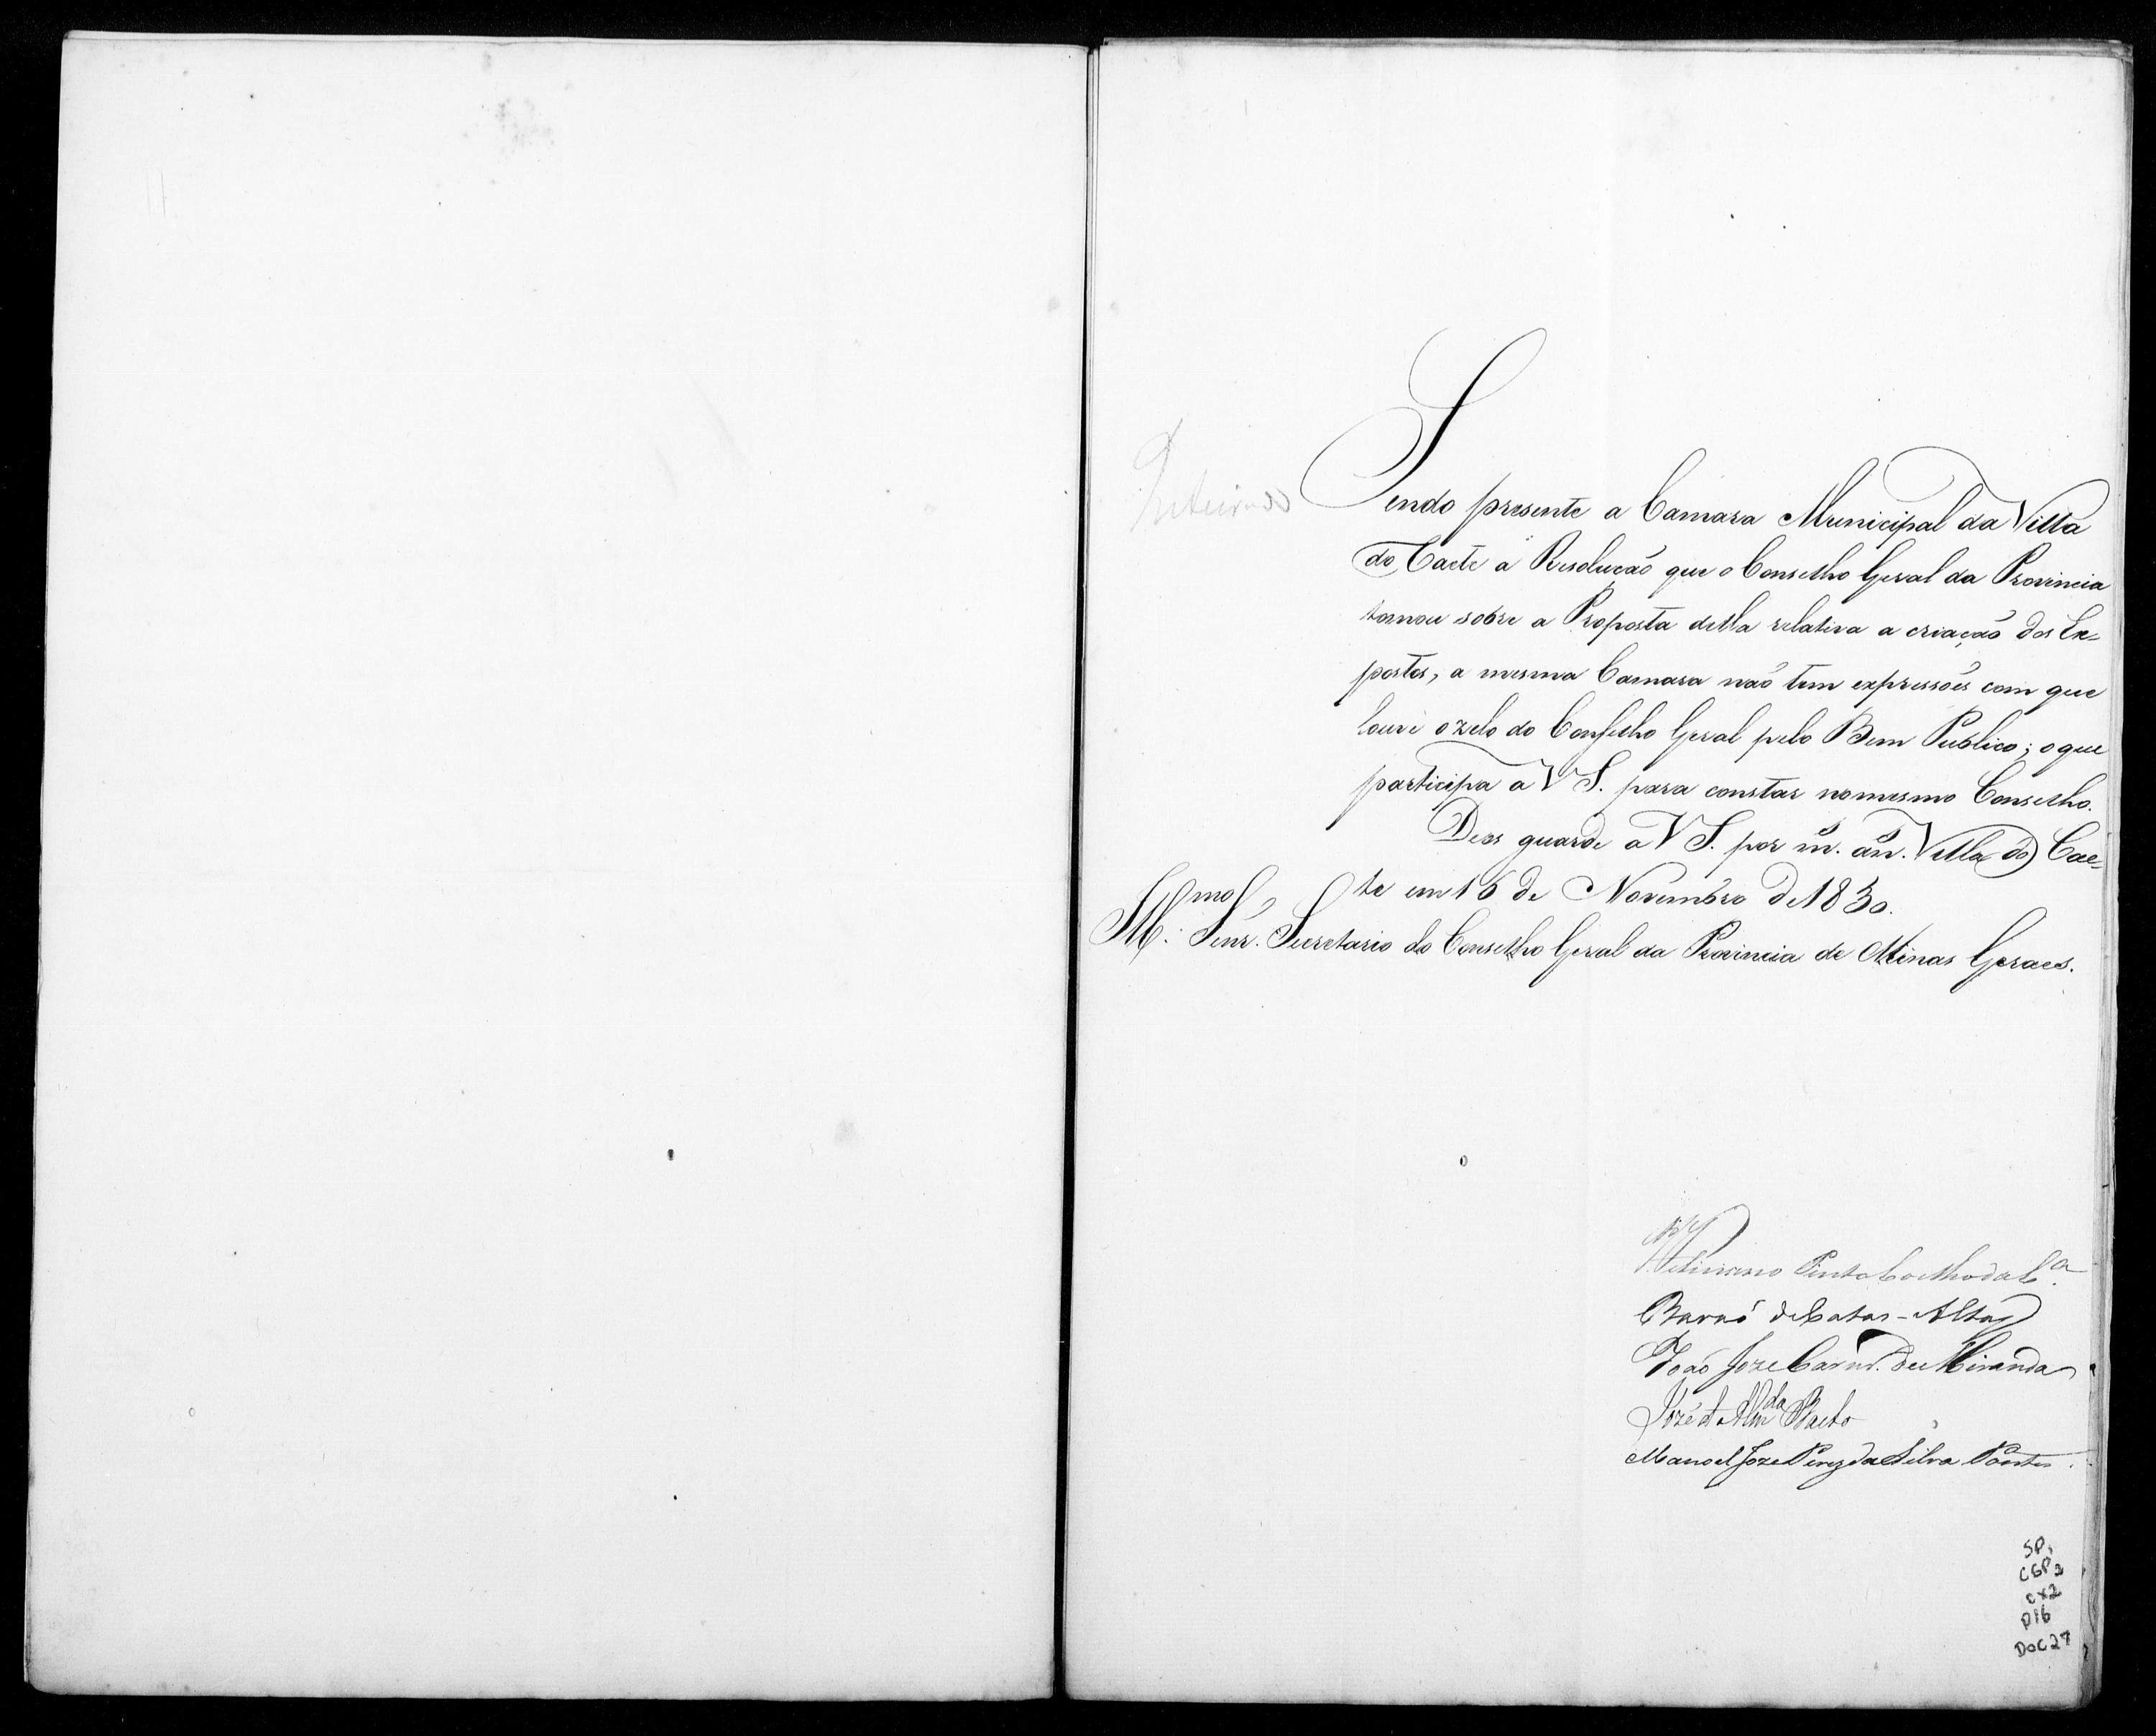 Inteirado
Sendo presente a Camara Municipal da Villa
do Caete a Resolucaõ que o Conselho Geral da Provincia
tomou sobre a Proposta della relativa a criaçaõ dos Ex=
postos, a mesma Camara naõ tem expressoẽs com que
louve o zelo do Conselho Geral pelo Bem Publico; o que
participa a V S. para constar no mesmo Conselho.
Deos guarde a V S. por m.s an.s Villa do Cae=
te em 16 de Novembro de 1830.
Ill.mo Senr. Secretario do Conselho Geral da Provincia de Minas Geraes.
Pinto Coelho da C.a
Baraõ de Catas-Altas
Joaõ Joze Carnr.o de Miranda
José d'Alm.da
Manoel Joze Pires da Silva Pontes.
SP,
CGP2
CX2
P16
DOC27